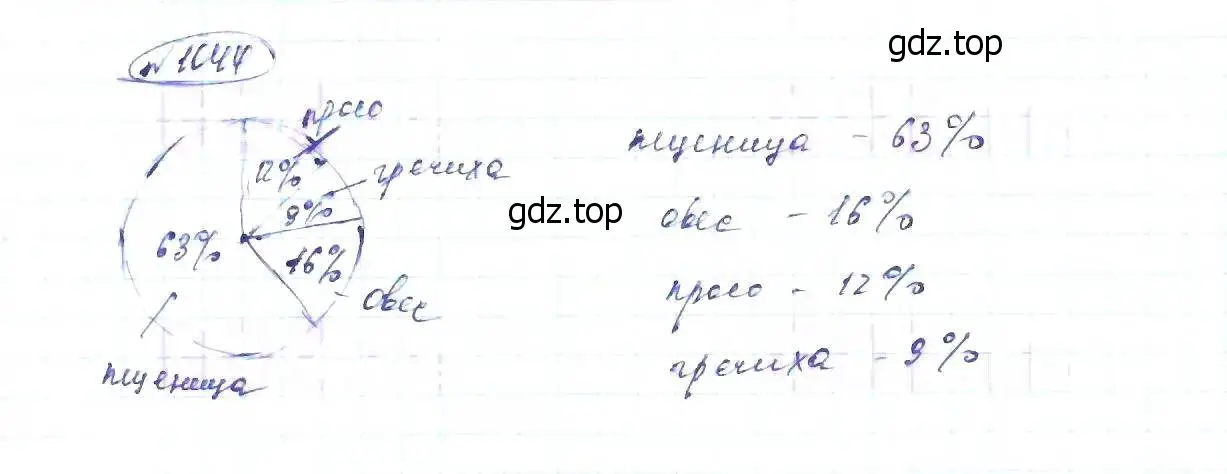 № 1044
просо
gdz.top
12%
гречиха
пшеница - 63%
9%
gdz.top
овес - 16%
63%
16%
овес
просо - 12%
пшеница
гречиха - 9%